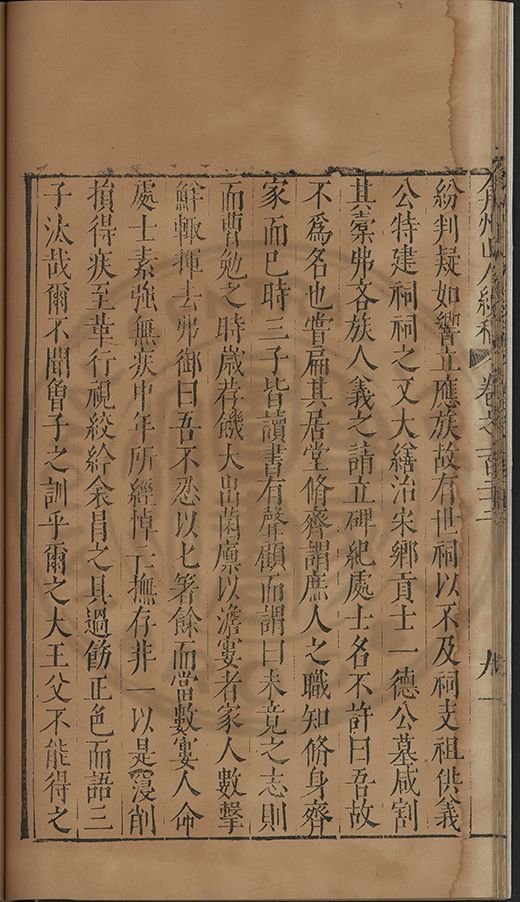 弇州山人續稿 卷之一百二十二 九
紛判疑如響立應族故有世祠以不及祠支祖供義
公特建祠祠之又大繕治宋鄉貢士一德公墓咸割
其橐弗吝族人義之請立碑紀處士名不許曰吾故
不爲名也嘗扁其居堂脩齊謂庶人之職知脩身齊
家而已時三子皆讀書有聲顧而謂曰未竟之志則
而曹勉之時歲荐饑大出菌廪以澹寠者家人數擊
鮮輙揮去弗御曰吾不忍以匕箸餘而當數寠人命
處士素強無疾中年所經悼亡撫存非一以是寖削
損得疾至革行視絞紟衾冒之具過飭正色而語三
子汰哉爾不聞曾子之訓乎爾之大王父不能得之